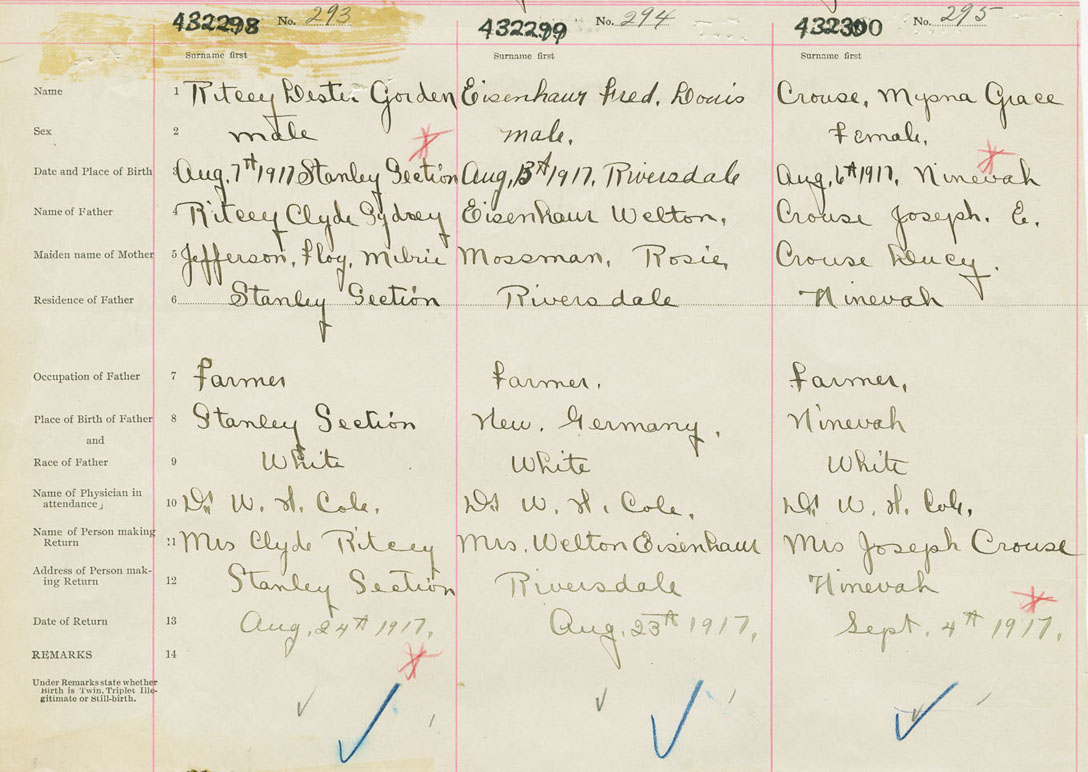 432298 No. 293 432299 No. 294 432300 No. 295
Surname first Surname first Surname first
Name 1 Ritcey Lester Gorden Eisenhaur Fred. Louis Crouse, Myrna Grace
Sex 2 male male. Female.
Date and Place of Birth 3 Aug. 7th 1917 Stanley Section Aug. 13th 1917. Riversdale Aug. 6th 1917. Ninevah
Name of Father 4 Ritcey Clyde Sydney Eisenhaur Welton. Crouse Joseph. E.
Maiden name of Mother 5 Jefferson, Floy, Mossman, Rosie Crouse Lucy.
Residence of Father 6 Stanley Section Riversdale Ninevah
Occupation of Father 7 Farmer Farmer. Farmer.
Place of Birth of Father 8 Stanley Section New. Germany. Ninevah
and
Race of Father 9 White White White
Name of Physician in
attendance 10 Dr W. H. Cole. Dr W. H. Cole. Dr W. H. Cole.
Name of Person making
Return 11 Mrs Clyde Ritcey Mrs. Welton Eisenhaur Mrs Joseph Crouse
Address of Person mak-
ing Return 12 Stanley Section Riversdale Ninevah
Date of Return 13 Aug. 24th 1917. Aug. 23th 1917. Sept. 4th 1917.
REMARKS 14
Under Remarks state whether
Birth is Twin, Triplet Ille-
gitimate or Still-birth.